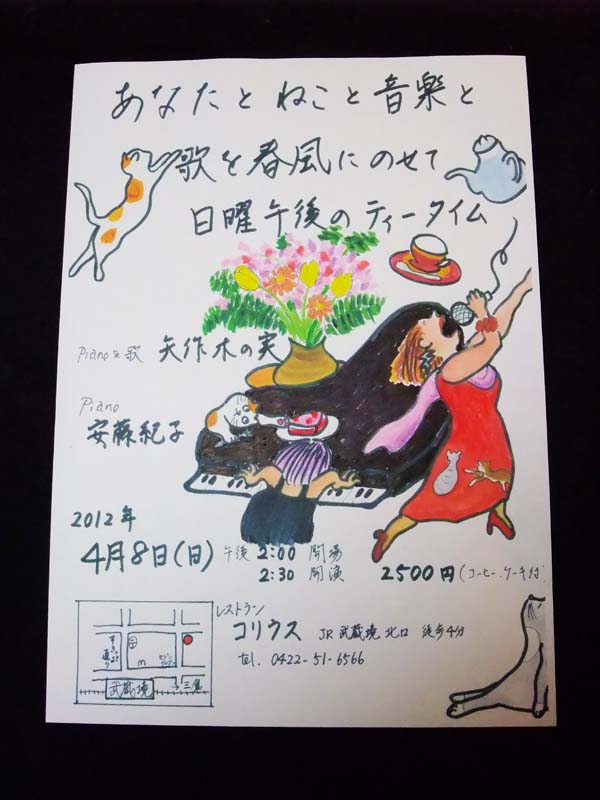 あなたとねこと音楽と
歌を春風にのせて
日曜午後のティータイム
Piano & 歌 矢作木の実
Piano
安藤紀子
2012年
4月8日(日) 午後 2:00 開場
2:30 開演 2500円(コーヒー、ケーキ付
レストラン
コリウス JR 武蔵境 北口 徒歩4分
tel. 0422-51-6566
すきっぷ通り
m
武蔵境
三鷹